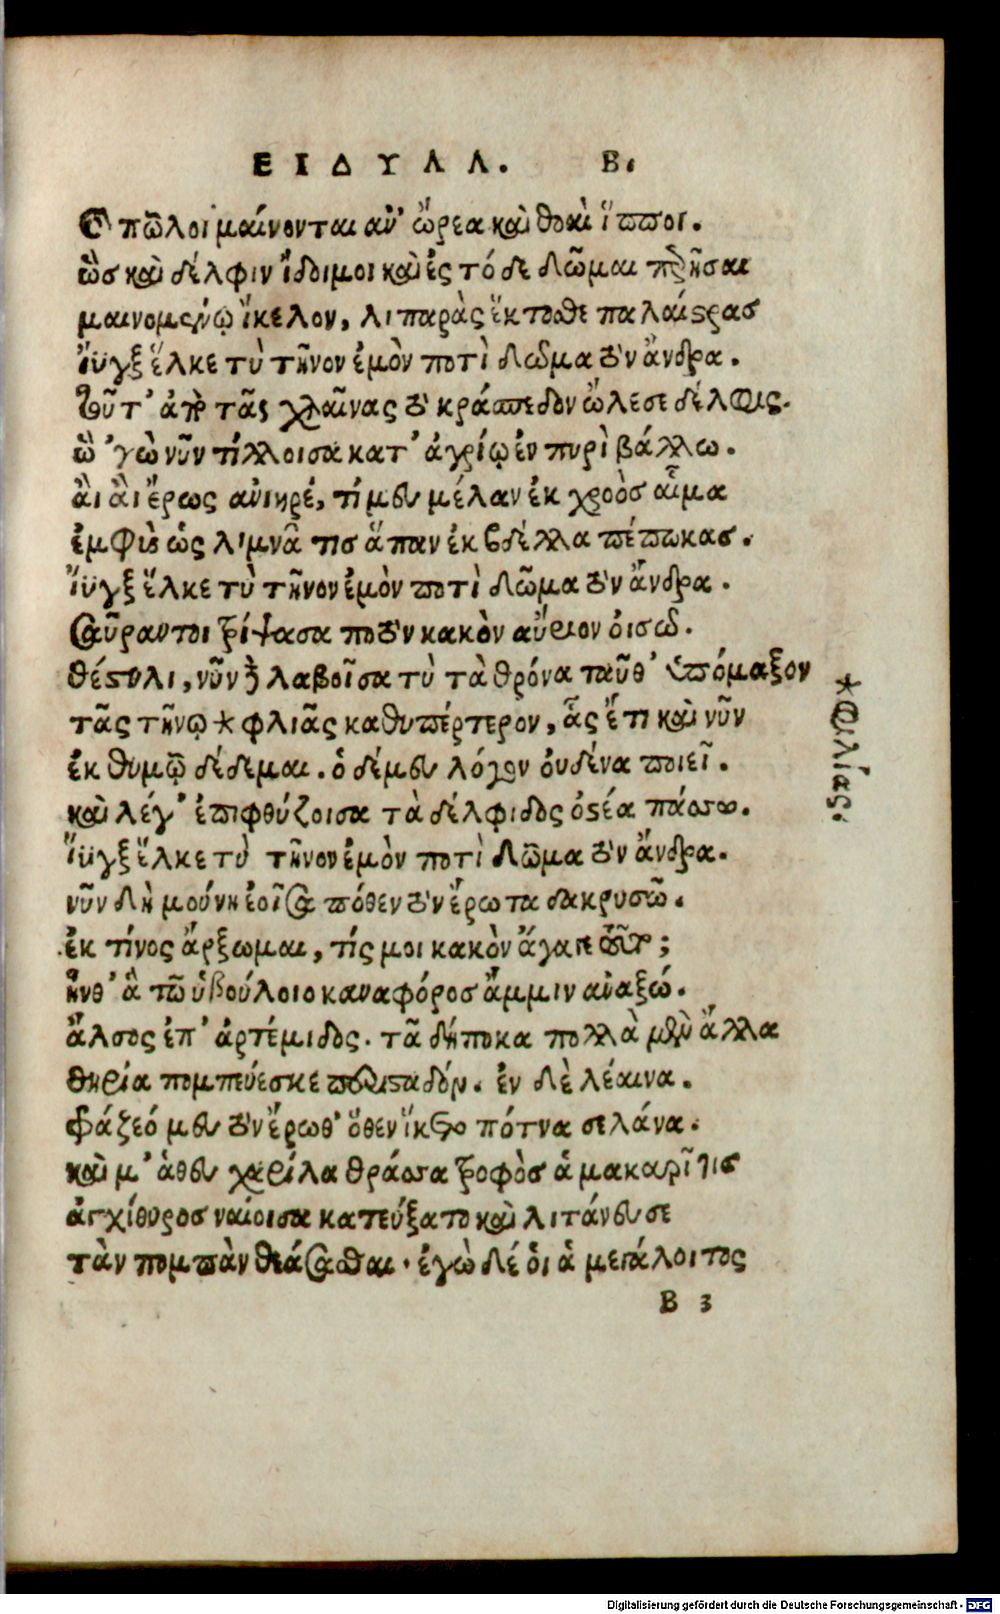 ΕΙΔΥΛΛ. Β.
Οἱ πῶλοι μαίνονται ἀν' ὤρεα καὶ θοαὶ ἵπποι.
ὣς καὶ δέλφιν ἴδοιμι καὶ ἐς τό δε δῶμα περῆσαι
μαινομένῳ ἴκελον, λιπαρὰς ἔκτοθε παλαίστρας
Ἴϋγξ ἕλκε τὺ τῆνον ἐμὸν ποτὶ δῶμα τὸν ἄνδρα.
Τοῦτ' ἀπὸ τᾶς χλαίνας τὸ κράσπεδον ὤλεσε δέλφις.
ὣ 'γὼ νῦν τίλλοισα κατ' ἀγρίῳ ἐν πυρὶ βάλλω.
αἲ αἲ ἔρως ἀνιηρέ, τί μευ μέλαν ἐκ χροὸς αἷμα
ἐμφὺς ὡς λιμνᾶτις ἅπαν ἐκ βδέλλα πέπωκας.
Ἴϋγξ ἕλκε τὺ τῆνον ἐμὸν ποτὶ δῶμα τὸν ἄνδρα.
Σαῦράν τοι τρίψασα ποτὸν κακὸν αὔριον οἰσῶ.
θέστυλι, νῦν δὲ λαβοῖσα τὺ τὰ θρόνα ταῦθ' ὑπόμαξον
τᾶς τήνῳ * φλιᾶς καθυπέρτερον, ἇς ἔτι καὶ νῦν
ἐκ θυμῶ δέδεμαι. ὁ δέ μευ λόγον οὐδένα ποιεῖ.
καὶ λέγ' ἐπιφθύζοισα τὰ δέλφιδος ὀστέα πάσσω.
Ἴϋγξ ἕλκε τὺ τῆνον ἐμὸν ποτὶ δῶμα τὸν ἄνδρα.
νῦν δὴ μούνη ἐοῖσα πόθεν τὸν ἔρωτα δακρυσῶ.
ἐκ τίνος ἄρξωμαι, τίς μοι κακὸν ἄγαγε τοῦτο;
ἦνθ' ἁ τῶ ὑβούλοιο καναφόρος ἄμμιν ἀναξώ.
ἄλσος ἐπ' ἀρτέμιδος. τᾶ δήποκα πολλὰ μὲν ἄλλα
θηρία πομπεύεσκε περισταδόν. ἐν δὲ λέαινα.
Φράζεό μευ τὸν ἔρωθ' ὅθεν ἵκετο πότνα σελάνα.
καὶ μ' ἁ θευχαρίλα θρᾷσσα τροφὸς ἁ μακαρῖτις
ἀγχίθυρος ναίοισα κατεύξατο καὶ λιτάνευσε
τὰν πομπὰν θεάσασθαι. ἐγὼ δέ οἱ ἁ μεγάλοιτος
Β 3
* φλιᾶς.
Digitalisierung gefördert durch die Deutsche Forschungsgemeinschaft - DFG